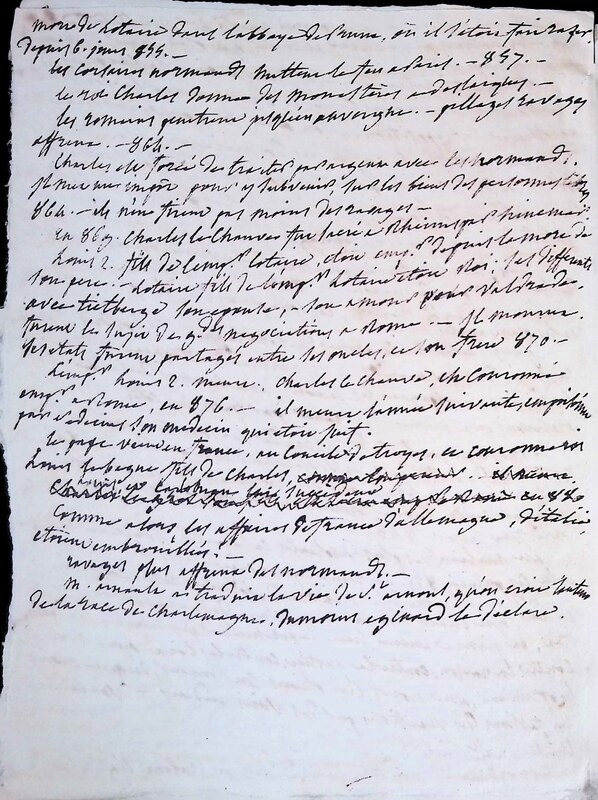 mort de Lotaire dans l'abbaye de Prum, où il s'étoit fait raser
depuis 6. jours 855. –
les corsaires normands mettent le feu a Paris. – 857. –
le roi Charles donne des monastères a des laïques. –
les normans penetrent jusqu'en auvergne. – pillages ravages
affreux. – 864. –
Charles est forcé de traiter par argent avec les normands.
il met un impôt pour y subvenir, sur les biens des personnes
864. – ils n'en firent pas moins des ravages –
en 869. Charles le Chauve fut sacré a Rheims par hincmar.
Louis 2. fils de l'emp.r Lotaire, étoit emp.r depuis la mort de
son père. – Lotaire fils de l'emp.r Lotaire étoit Roi; ses differents
avec tietberge son epouse, – son amour pour Valdrade.
furent le sujet de g.des negociations a Rome – il mourut.
ses etats furent partagés entre ses oncles, et son frere 870. –
L'emp.r Louis 2. meurt. Charles le Chauve, est couronné
emp.r a Rome, en 876. – il meurt l'année suivante, empoisonné
par Sedecias son medecin qui étoit juif.
le pape vient en france, au Concile de troyes, et couronne roi
Louis le begue fils de Charles,
Comme alors les affaires de france d'allemagne, d'italie,
etoient embrouillées! –
ravages plus affreux des normands. –
m. arnauld a traduit la vie de S.t arnoul, qu'on croit l'auteur
de la race de Charlemagne, du moins eginard le déclare.